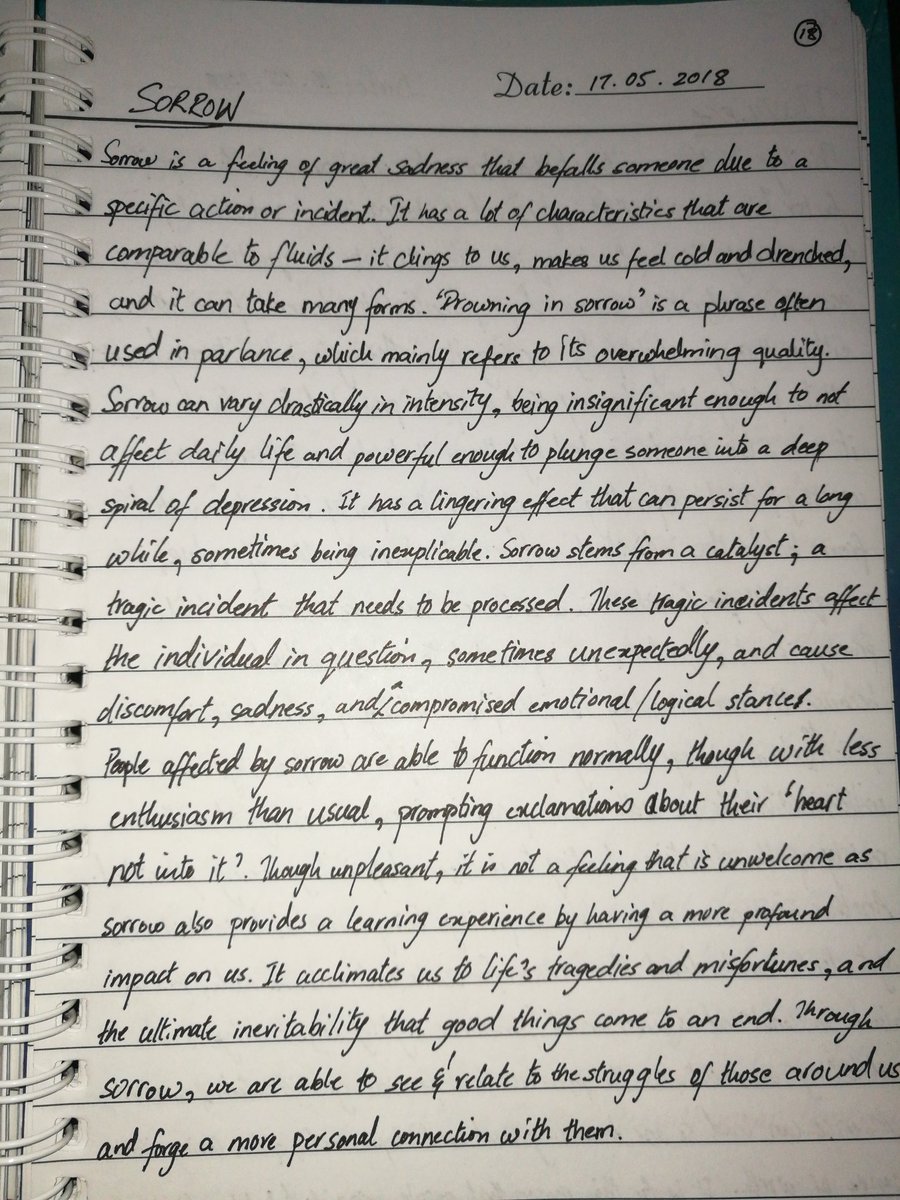 18
Date: 17.05.2018
SORROW
Sorrow is a feeling of great sadness that befalls someone due to a
specific action or incident. It has a lot of characteristics that are
comparable to fluids – it clings to us, makes us feel cold and drenched,
and it can take many forms. 'Drowning in sorrow' is a phrase often
used in parlance, which mainly refers to its overwhelming quality.
Sorrow can vary drastically in intensity, being insignificant enough to not
affect daily life and powerful enough to plunge someone into a deep
spiral of depression. It has a lingering effect that can persist for a long
while, sometimes being inexplicable. Sorrow stems from a catalyst; a
tragic incident that needs to be processed. These tragic incidents affect
the individual in question, sometimes unexpectedly, and cause
discomfort, sadness, and a compromised emotional/logical stances.
People affected by sorrow are able to function normally, though with less
enthusiasm than usual, prompting exclamations about their 'heart
not into it'. Though unpleasant, it is not a feeling that is unwelcome as
sorrow also provides a learning experience by having a more profound
impact on us. It acclimates us to life's tragedies and misfortunes, and
the ultimate inevitability that good things come to an end. Through
sorrow, we are able to see & relate to the struggles of those around us
and forge a more personal connection with them.